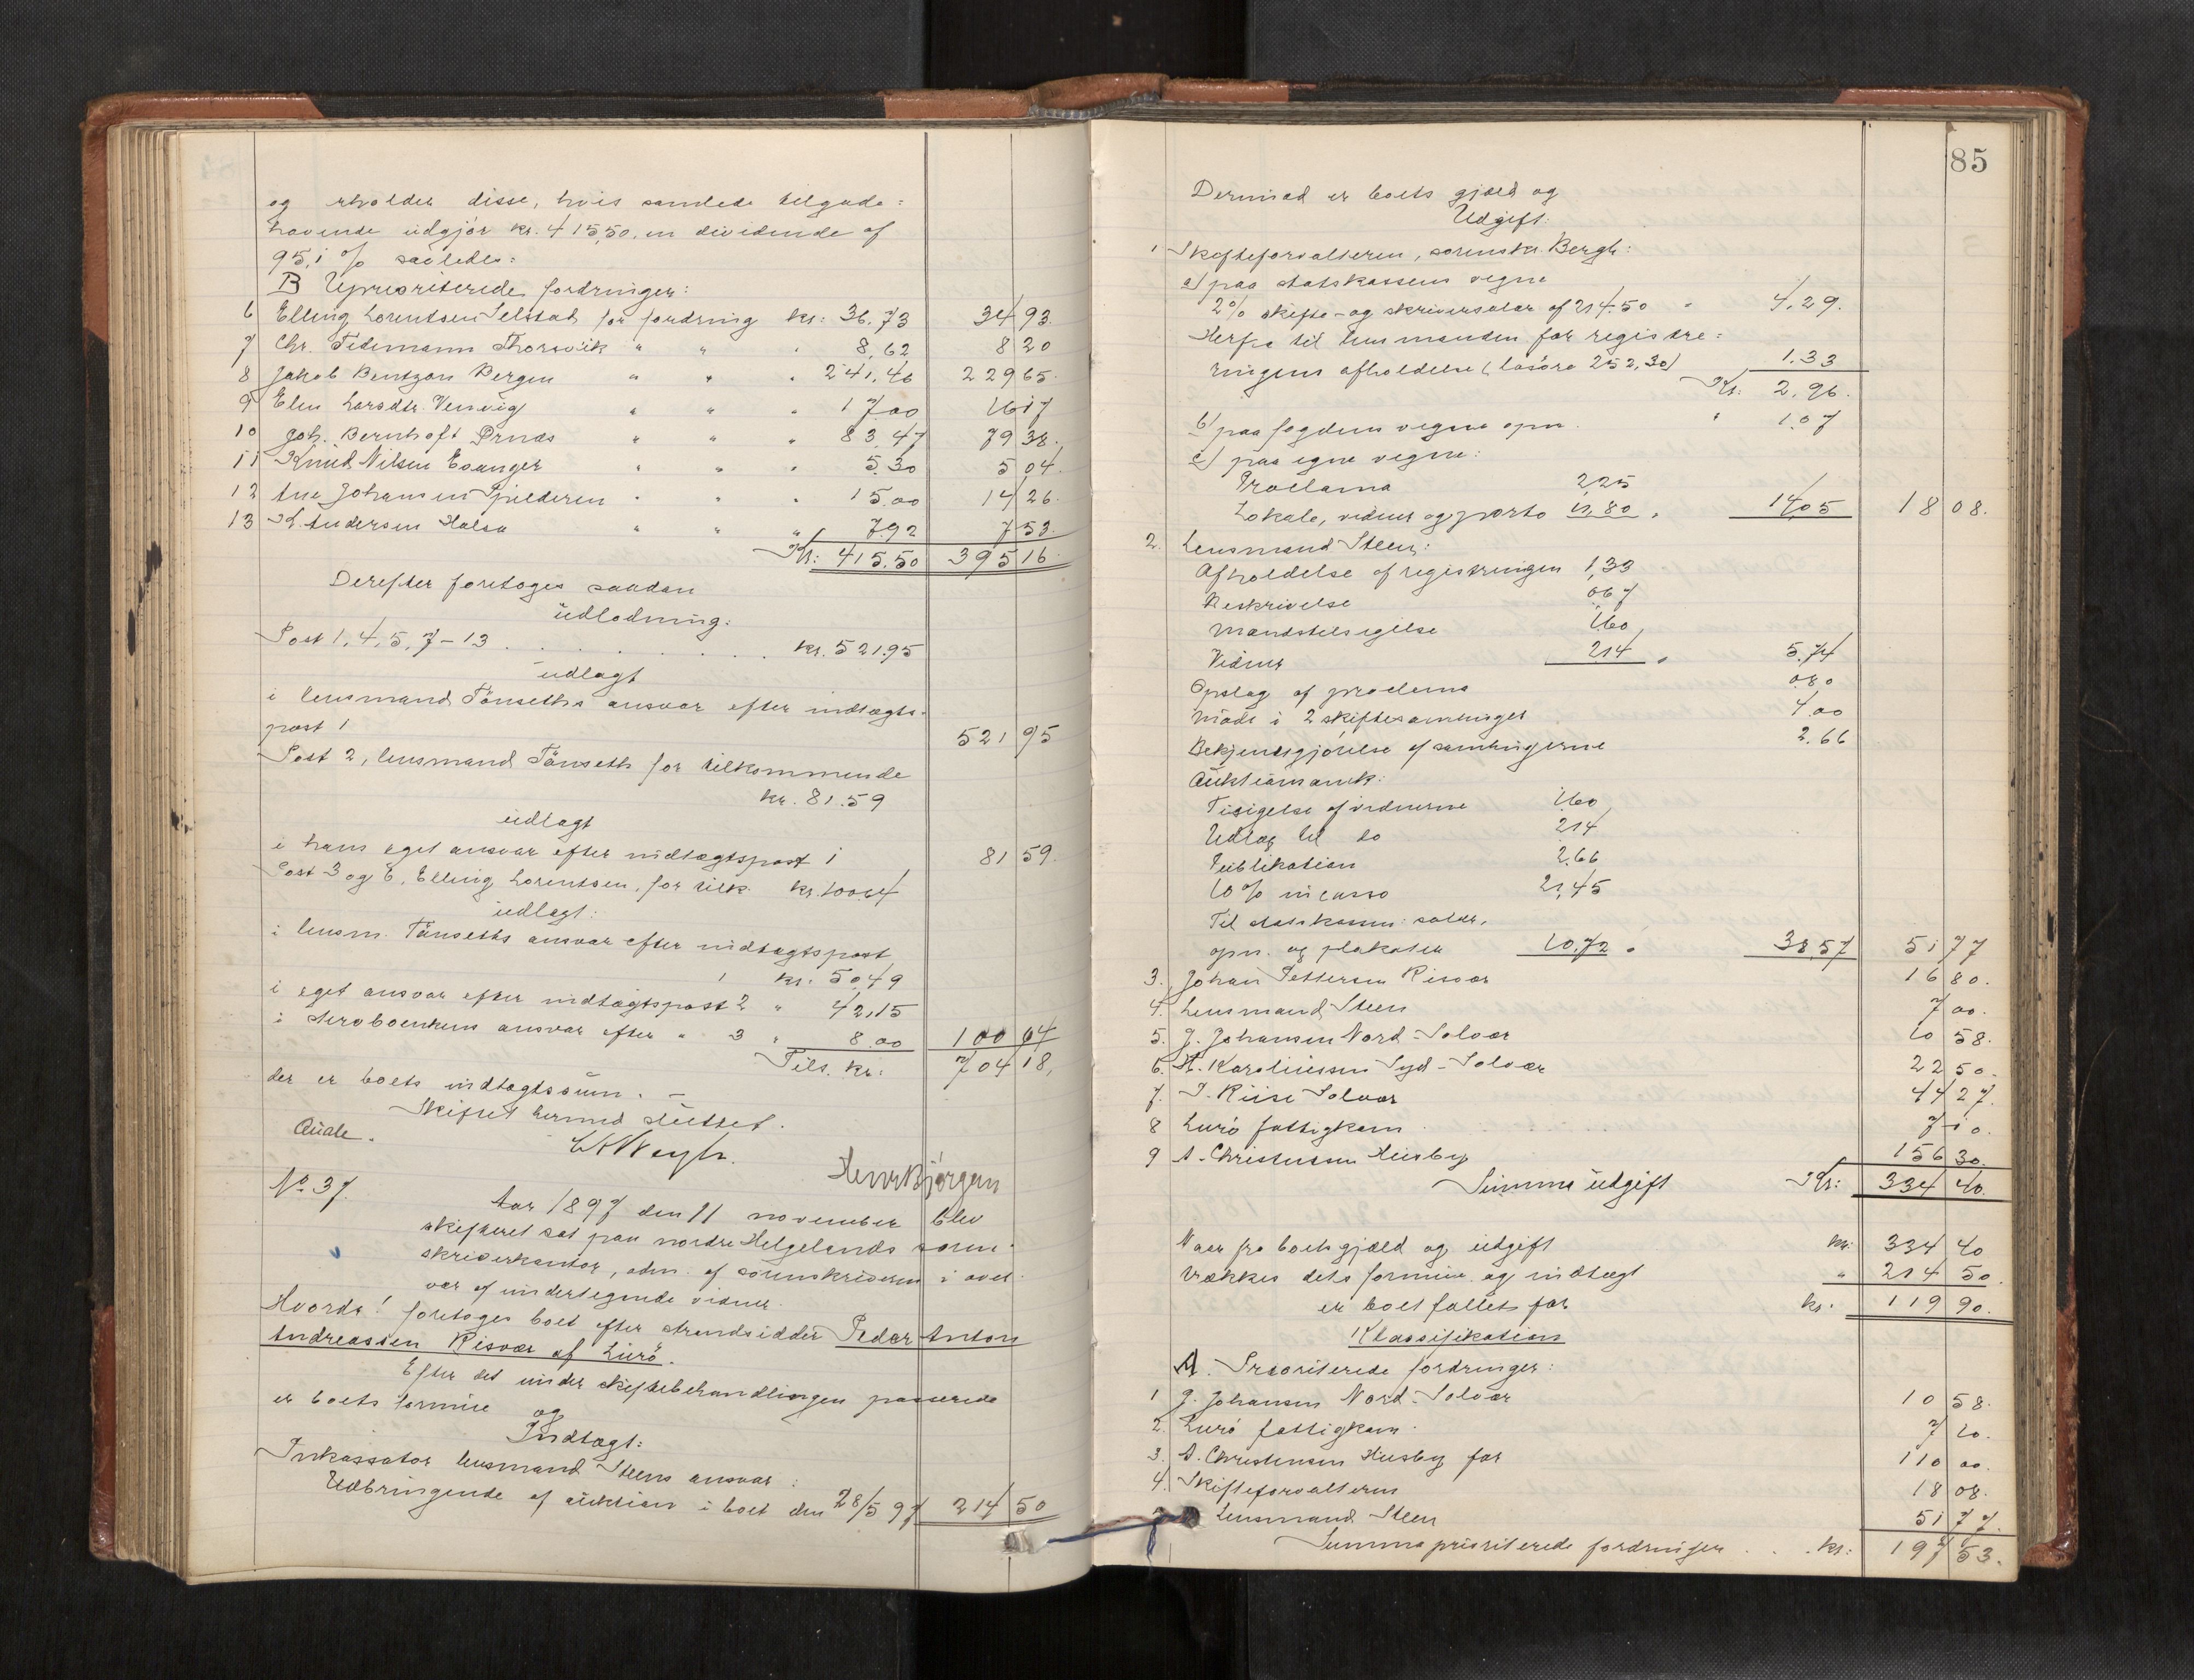 og erholder disse, hvis samlede tilgode=
havende udgjör kr. 415,50, en dividende af
95,1 % saaledes:
B Uprioriterede fordringer:
6 Elling Lorentsen Selstad for fordring kr: 36,73 34 93.
7 Chr. Tidemann Thorsvik " " " 8,62 8 20
8 Jakob Bentzon Bergen " " " 241,46 229 65.
9 Elen Larsdtr. Venvig " " " 17,00 16 17
10 Joh. Bernhoft Prnæs " " " 83,47 79 38.
11 Knud Nilsen Esanger " " " 5.30 5 04.
12 Ane Johansen Spilderen " " " 15.00 14 26.
13 K. Andersen Halsa " " " 7.92 7 53.
Kr: 415.50 395 16.
Derefter foretoges saadan
udlodning:
Post 1, 4, 5, 7-13 . . . . . . kr. 521.95
udlagt
i lensmand Tönseths ansvar efter indtægts-
post 1 521 95
Post 2, lensmand Tönseth for tilkommende
kr. 81.59
udlagt
i hans eget ansvar efter indtægtspost 1 81 59.
Post 3 og 6, Elling Lorentsen, for tilk. kr. 100.64
udlagt:
i lensm. Tönseths ansvar efter indtægtspost
1 kr: 50,49
i eget ansvar efter indtægtspost 2 " 42,15
i ansvar efter " 3 " 8.00 100 64
Tils. kr: 704 18.
der er boets indtægtssum. -
Skiftet hermed sluttet.
No. 37.
Aar 1897 den 11 november blev
skifteret sat paa nordre Helgelands soren=
skriverkontor, adm. af sorenskriveren i over=
vær af undertegnede vidner.
Hvorda! foretoges boet efter strandsidder Peder Anton
Andreassen Risvær af Lurö.
Efter det under skiftebehandlingen passerede
er boets formue
og
Indtægt:
Inkassator lensmand Steens ansvar:
Udbringende af auktion i boet den 28/5 97 214 50
85
Dermod er boets gjæld og
Udgift:
1 Skifteforvalteren, sorenskr. Bergh:
a) paa statskassens vegne
2% skifte- og skriversalær af 214.50 " 4.29.
Herfra til lensmanden for registre=
ringens afholdelse (lösöre 252,30) 1.33
Kr: 2.96.
b) paa fogdens vegne opn. " 1.07
c) paa egne vegne:
Proclama 2,25
Lokale, vidner og porto 11,80 " 14,05 18 08.
2. Lensmand Steen:
Afholdelse af registreringen 1,33
Beskrivelse 0,67
Mandstilsigelse 1.60
Vidner 2.14 " 5.74
Opslag af proclama 0.80
Möde i 2 skiftesamlinger 4.00
Bekjendtgjörelse af samlingerne 2.66
Auktionsomk:
Tilsigelse af vidnerne 1.60
Udlæg til do 2.14
Publikation 2.66
10% incasso 21,45
Til statskassen: salær,
opn. og plakater 10.72 " 38,57 51 77
3. Johan Pettersen Risvær 16 80.
4. Lensmand Steen 7 00.
5. J. Johansen Nord-Solvær 10 58.
6. H. Karoliussen Syd-Solvær 22 50.
7. I. Riise Solvær 44 27.
8 Lurö fattigkasse 7 10.
9 A. Christensen Husby 156 30.
Summa udgift Kr: 334 40.
Naar fra boets gjæld og udgift kr: 334 40
trækkes dets formue og indtægt " 214 50.
er boet fallit for kr: 119 90.
Klassifikation
A. Prioriterede fordringer:
1 J. Johansen Nord-Solvær 10 58.
2. Lurö fattigkasse 7 10.
3. A. Christensen Husby for 110 00.
4. Skifteforvalteren 18 08.
Lensmand Steen 51 77.
Summa prioriterede fordringer . . . kr: 197 53.